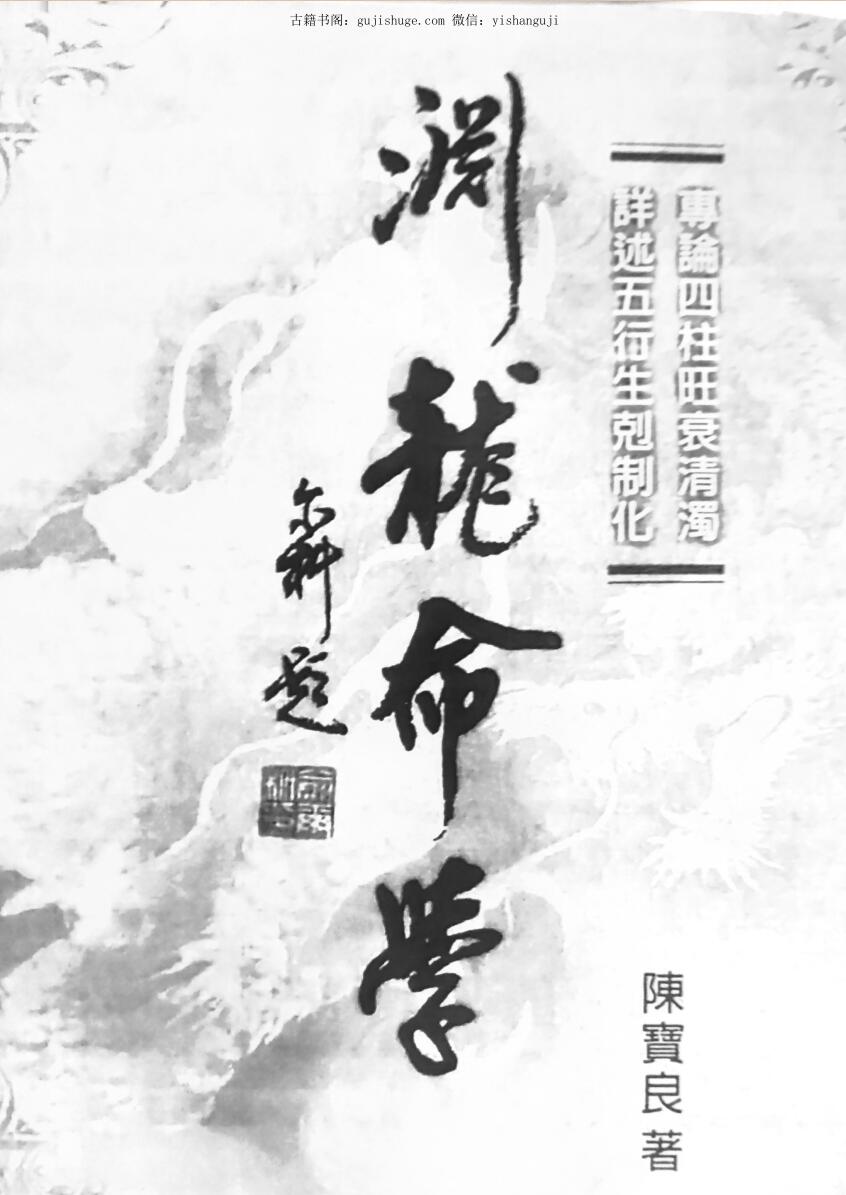 古籍书阁：gujishuge.com 微信：yishanguji
專論四柱旺衰清濁
詳述五行生剋制化
淵龍命學
題
陳寶良 著